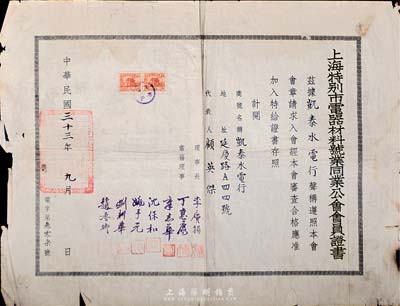 上海特别市電器材料號業同業公會會員證書
茲據凱泰水電行聲稱遵照本會
會章請求入會經本會審查合格應准
加入特給證書存照
計開
商號名稱 凱泰水電行
地址 延慶路A四四號
代表人 顧英傑
理事長
常務理事
沈保和
中華民國三十三年九月 日